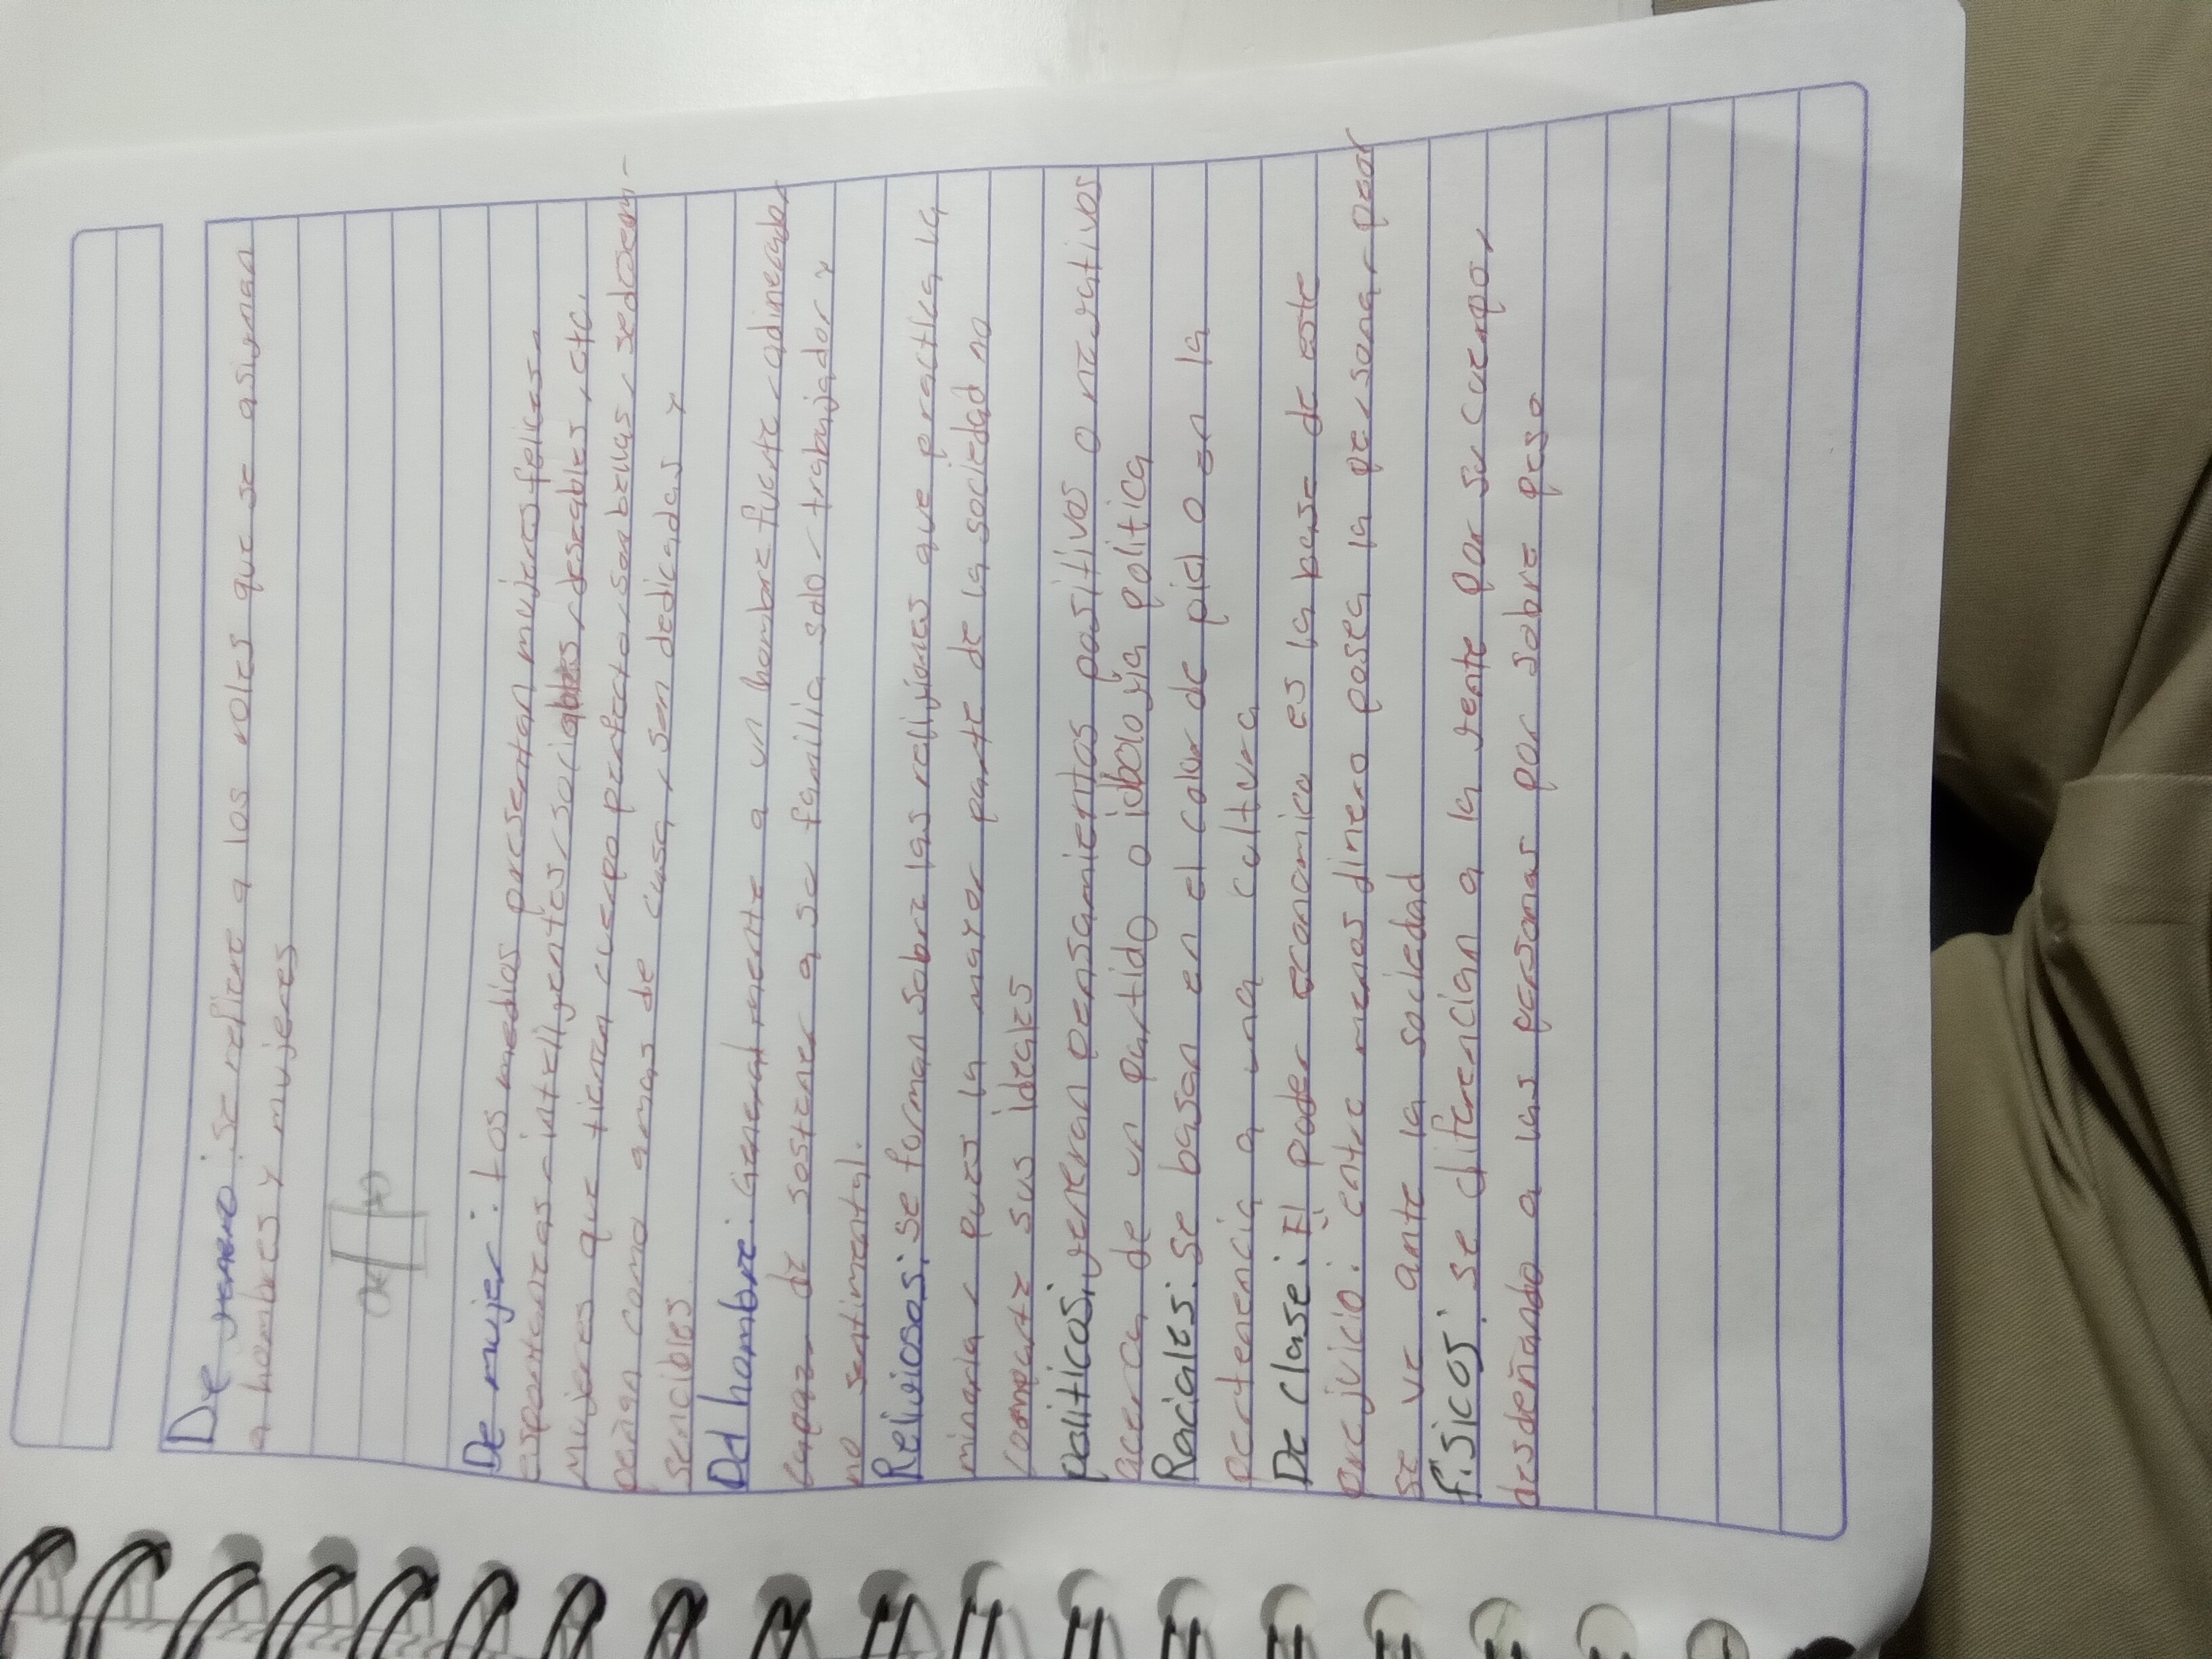 De genero: Se refiere a los roles que se asignan
a hombres y mujeres
De mujer: Los medios presentan mujeres felices,
espontaneas, intelijentes, sociables, deseables, etc.
Mujeres que tienen cuerpo perfecto, son bellas, sedesem-
peñan como amas de casa, son dedicadas y
sencibles
Del hombre: Generalmente a un hombre fuerte, adinerado,
capaz de sostener a su familia solo, trabajador y
no sentimental.
Religiosos: se forman sobre las religiones que practica la
minoria, pues la mayor parte de la sociedad no
comparte sus ideales
politicos: generan pensamientos positivos o negativos
acerca de un partido o ideologia politica
Raciales: Se basan en el color de piel o en la
pertenencia a una cultura
De clase: El poder economico es la base de este
prejuicio: entre menos dinero posea la persona, peor
se ve ante la sociedad
fisicos: se diferencian a la gente por su cuerpo,
desdeñando a las personas por sobre peso